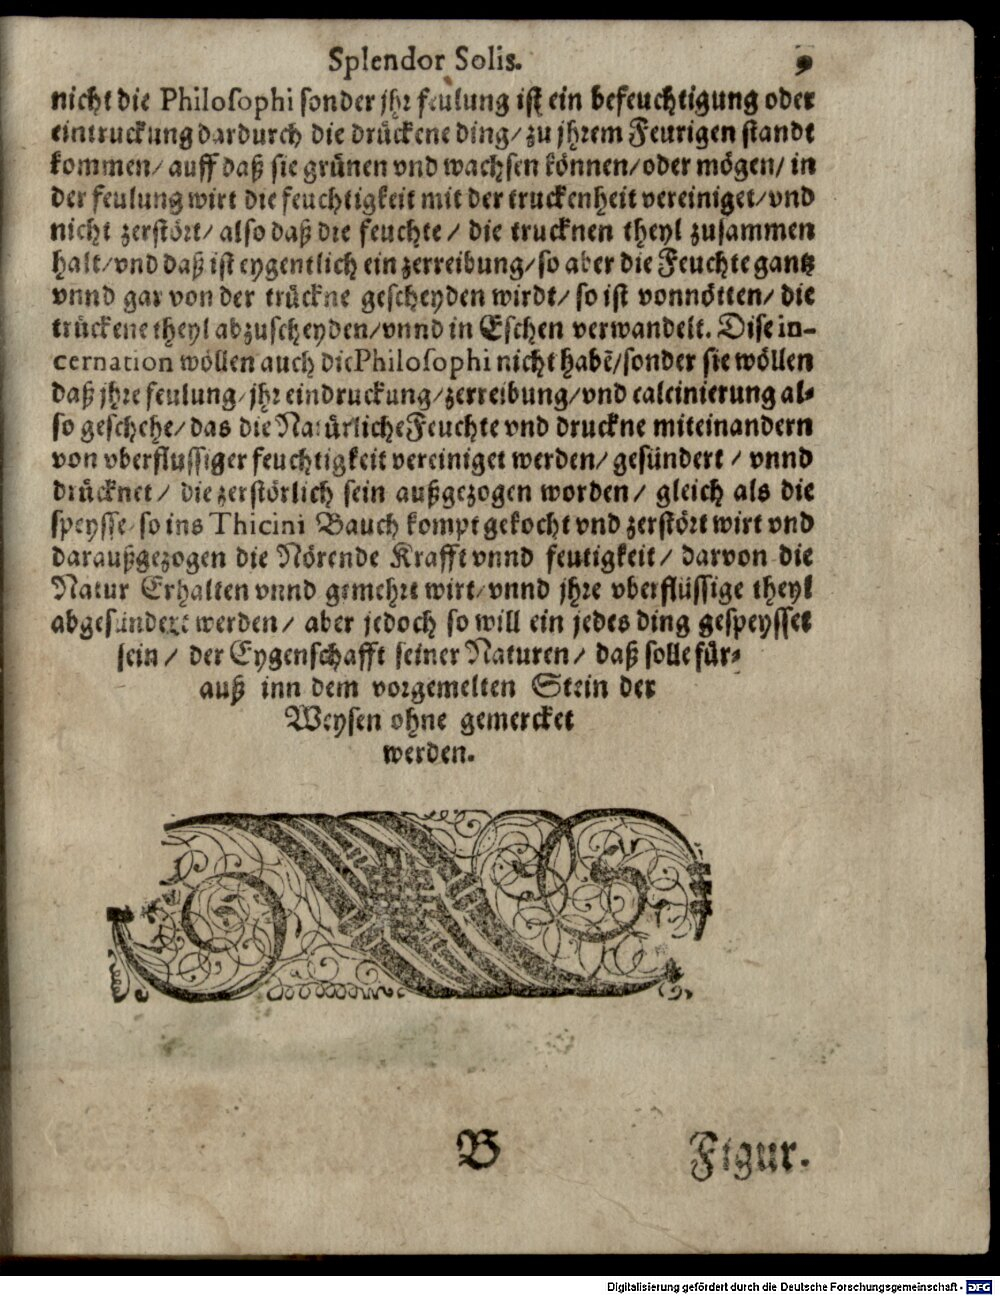 Splendor Solis. 9
nicht die Philosophi sonder jhr feulung ist ein befeuchtigung oder
eintruckung dardurch die drückene ding/ zu jhrem Feurigen standt
kommen/ auff daß sie grünen vnd wachsen können/ oder mögen/ in
der feulung wirt die feuchtigkeit mit der truckenheit vereiniget/ vnd
nicht zerstört/ also daß die feuchte / die trucknen theyl zusammen
halt/ vnd daß ist eygentlich ein zerreibung/ so aber die Feuchte gantz
vnnd gar von der trückne gescheyden wirdt/ so ist vonnötten/ die
trückene theyl abzuscheyden/ vnnd in Eschen verwandelt. Dise in-
cernation wöllen auch die Philosophi nicht habē/ sonder sie wöllen
daß jhre feulung/ jhr eindruckung/ zerreibung/ vnd calcinierung al-
so geschehe/ das die Natürliche Feuchte vnd druckne miteinandern
von vberflussiger feuchtigkeit vereiniget werden/ gesündert / vnnd
drücknet / die zerstörlich sein außgezogen worden/ gleich als die
speysse/ so ins Thicini Bauch kompt gekocht vnd zerstört wirt vnd
daraußgezogen die Nörende Krafft vnnd feutigkeit/ darvon die
Natur Erhalten vnnd gemehrt wirt/ vnnd jhre vberflüssige theyl
abgesündert werden/ aber jedoch so will ein jedes ding gespeysset
sein / der Eygenschafft seiner Naturen/ daß solle für-
auß inn dem vorgemelten Stein der
Weysen ohne gemercket
werden.
B Figur.
Digitalisierung gefördert durch die Deutsche Forschungsgemeinschaft - DFG